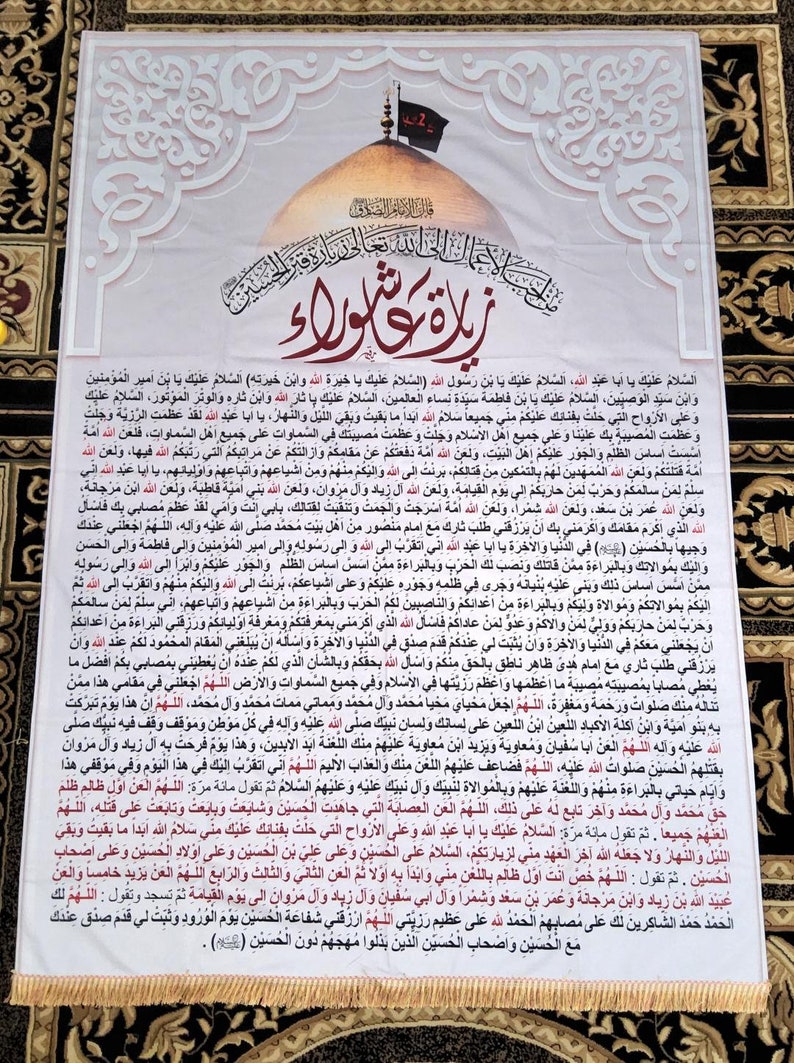 يا حسين
قال الإمام الصادق
من أحب الأعمال إلى الله تعالى زيارة قبر الحسين
زيارة عاشوراء
اَلسَّلامُ عَلَيْكَ يا اَبا عَبْدِ اللهِ، اَلسَّلامُ عَلَيْكَ يَا بْنَ رَسُولِ اللهِ (السَّلامُ عَلَيكَ يا خِيَرَةَ اللهِ وابْنَ خِيَرَتِهِ) اَلسَّلامُ عَلَيْكَ يَا بْنَ اَميرِ الْمُؤْمِنينَ
وَابْنَ سَيِّدِ الْوَصِيّينَ، اَلسَّلامُ عَلَيْكَ يَا بْنَ فاطِمَةَ سَيِّدَةِ نِساءِ الْعالَمينَ، اَلسَّلامُ عَلَيْكَ يا ثارَ اللهِ وَابْنَ ثارِهِ وَالْوِتْرَ الْمَوْتُورَ، اَلسَّلامُ عَلَيْكَ
وَعَلَى الاَْرْواحِ الَّتي حَلَّتْ بِفِنائِكَ عَلَيْكُمْ مِنّي جَميعاً سَلامُ اللهِ اَبَداً ما بَقيتُ وَبَقِيَ اللَّيْلُ وَالنَّهارُ، يا اَبا عَبْدِ اللهِ لَقَدْ عَظُمَتِ الرَّزِيَّةُ وَجَلَّتْ
وَعَظُمَتِ الْمُصيبَةُ بِكَ عَلَيْنا وَعَلى جَميعِ اَهْلِ الاِْسْلامِ وَجَلَّتْ وَعَظُمَتْ مُصيبَتُكَ فِي السَّماواتِ عَلى جَميعِ اَهْلِ السَّماواتِ، فَلَعَنَ اللهُ اُمَّةً
اَسَّسَتْ اَساسَ الظُّلْمِ وَالْجَوْرِ عَلَيْكُمْ اَهْلَ الْبَيْتِ، وَلَعَنَ اللهُ اُمَّةً دَفَعَتْكُمْ عَنْ مَقامِكُمْ وَاَزالَتْكُمْ عَنْ مَراتِبِكُمُ الَّتي رَتَّبَكُمُ اللهُ فيها، وَلَعَنَ اللهُ
اُمَّةً قَتَلَتْكُمْ وَلَعَنَ اللهُ الْمُمَهِّدينَ لَهُمْ بِالَّتمْكينِ مِنْ قِتالِكُمْ، بَرِئْتُ اِلَى اللهِ وَاِلَيْكُمْ مِنْهُمْ وَمِنْ اَشْياعِهِمْ وَاَتْباعِهِمْ وَاَوْلِيائِهِمْ، يا اَبا عَبْدِ اللهِ اِنّي
سِلْمٌ لِمَنْ سالَمَكُمْ وَحَرْبٌ لِمَنْ حارَبَكُمْ اِلى يَوْمِ الْقِيامَةِ، وَلَعَنَ اللهُ آلَ زِياد وَآلَ مَرْوانَ، وَلَعَنَ اللهُ بَني اُمَيَّةَ قاطِبَةً، وَلَعَنَ اللهُ ابْنَ مَرْجانَةَ،
وَلَعَنَ اللهُ عُمَرَ بْنَ سَعْد، وَلَعَنَ اللهُ شِمْراً، وَلَعَنَ اللهُ اُمَّةً اَسْرَجَتْ وَاَلْجَمَتْ وَتَنَقَّبَتْ لِقِتالِكَ، بِاَبي اَنْتَ وَاُمّي لَقَدْ عَظُمَ مُصابي بِكَ فَاَسْأَلُ
اللهَ الَّذي اَكْرَمَ مَقامَكَ وَاَكْرَمَني بِكَ اَنْ يَرْزُقَني طَلَبَ ثارِكَ مَعَ اِمام مَنْصُور مِنْ اَهْلِ بَيْتِ مُحَمَّد صَلَّى اللهُ عَلَيْهِ وَآلِهِ، اَللّـهُمَّ اجْعَلْني عِنْدَكَ
وَجيهاً بِالْحُسَيْنِ (عليه السلام) فِي الدُّنْيا وَالاْخِرَةِ يا اَبا عَبْدِ اللهِ اِنّي اَتَقَرَّبُ اِلى اللهِ وَ اِلى رَسُولِهِ وَاِلى اميرِ الْمُؤْمِنينَ وَاِلى فاطِمَةَ وَاِلى الْحَسَنِ
وَاِلَيْكَ بِمُوالاتِكَ وَبِالْبَراءَةِ مِمَّنْ قاتَلَكَ وَنَصَبَ لَكَ الْحَرْبَ وَبِالْبَراءَةِ مِمَّنْ اَسَّسَ اَساسَ الظُّلْمِ وَالْجَوْرِ عَلَيْكُمْ وَاَبْرَأُ اِلَى اللهِ وَاِلى رَسُولِهِ
مِمَّنْ اَسَّسَ اَساسَ ذلِكَ وَبَنى عَلَيْهِ بُنْيانَهُ وَجَرى فِي ظُلْمِهِ وَجَوْرِهِ عَلَيْكُمْ وَعَلى اَشْياعِكُمْ، بَرِئْتُ اِلَى اللهِ وَاِلَيْكُمْ مِنْهُمْ وَاَتَقَرَّبُ اِلَى اللهِ ثُمَّ
اِلَيْكُمْ بِمُوالاتِكُمْ وَمُوالاةِ وَلِيِّكُمْ وَبِالْبَراءَةِ مِنْ اَعْدائِكُمْ وَالنّاصِبينَ لَكُمُ الْحَرْبَ وَبِالْبَراءَةِ مِنْ اَشْياعِهِمْ وَاَتْباعِهِمْ، اِنّي سِلْمٌ لِمَنْ سالَمَكُمْ
وَحَرْبٌ لِمَنْ حارَبَكُمْ وَوَلِيٌّ لِمَنْ والاكُمْ وَعَدُوٌّ لِمَنْ عاداكُمْ فَاَسْأَلُ اللهَ الَّذي اَكْرَمَني بِمَعْرِفَتِكُمْ وَمَعْرِفَةِ اَوْلِيائِكُمْ وَرَزَقَنِي الْبَراءَةَ مِنْ اَعْدائِكُمْ
اَنْ يَجْعَلَني مَعَكُمْ فِي الدُّنْيا وَالاْخِرَةِ وَاَنْ يُثَبِّتَ لي عِنْدَكُمْ قَدَمَ صِدْق فِي الدُّنْيا وَالاْخِرَةِ وَاَسْأَلُهُ اَنْ يُبَلِّغَنِي الْمَقامَ الْمَحْمُودَ لَكُمْ عِنْدَ اللهِ وَاَنْ
يَرْزُقَني طَلَبَ ثاري مَعَ اِمام هُدىً ظاهِر ناطِق بِالْحَقِّ مِنْكُمْ وَاَسْألُ اللهَ بِحَقِّكُمْ وَبِالشَّأنِ الَّذي لَكُمْ عِنْدَهُ اَنْ يُعْطِيَني بِمُصابي بِكُمْ اَفْضَلَ ما
يُعْطي مُصاباً بِمُصيبَتِهِ مُصيبَةً ما اَعْظَمَها وَاَعْظَمَ رَزِيَّتَها فِي الاِْسْلامِ وَفِي جَميعِ السَّماواتِ وَالارْضِ اَللّـهُمَّ اجْعَلْني في مَقامي هذا مِمَّنْ
تَنالُهُ مِنْكَ صَلَواتٌ وَرَحْمَةٌ وَمَغْفِرَةٌ، اَللّـهُمَّ اجْعَلْ مَحْيايَ مَحْيا مُحَمَّد وَآلِ مُحَمَّد وَمَماتي مَماتَ مُحَمَّد وَآلِ مُحَمَّد، اَللّـهُمَّ اِنَّ هذا يَوْمٌ تَبرَّكَتْ
بِهِ بَنُو اُمَيَّةَ وَابْنُ آكِلَةِ الاَْكبادِ اللَّعينُ ابْنُ اللَّعينِ عَلى لِسانِكَ وَلِسانِ نَبِيِّكَ صَلَّى اللهُ عَلَيْهِ وَآلِهِ في كُلِّ مَوْطِن وَمَوْقِف وَقَفَ فيهِ نَبِيُّكَ صَلَّى
اللهُ عَلَيْهِ وَآلِهِ اَللّـهُمَّ الْعَنْ اَبا سُفْيانَ وَمُعاوِيَةَ وَيَزيدَ ابْنَ مُعاوِيَةَ عَلَيْهِمْ مِنْكَ اللَّعْنَةُ اَبَدَ الاْبِدينَ، وَهذا يَوْمٌ فَرِحَتْ بِهِ آلُ زِياد وَآلُ مَرْوانَ
بِقَتْلِهِمُ الْحُسَيْنَ صَلَواتُ اللهِ عَلَيْهِ، اَللّـهُمَّ فَضاعِفْ عَلَيْهِمُ اللَّعْنَ مِنْكَ وَالْعَذابَ الاَْليمَ اَللّـهُمَّ اِنّي اَتَقَرَّبُ اِلَيْكَ في هذَا الْيَوْمِ وَفِي مَوْقِفي هذا
وَاَيّامِ حَياتي بِالْبَراءَةِ مِنْهُمْ وَاللَّعْنَةِ عَلَيْهِمْ وَبِالْمُوالاةِ لِنَبِيِّكَ وَآلِ نَبِيِّكَ عَلَيْهِ وَعَلَيْهِمُ السَّلامُ ثمّ تقول مائة مرّة: اَللّـهُمَّ الْعَنْ اَوَّلَ ظالِم ظَلَمَ
حَقَّ مُحَمَّد وَآلِ مُحَمَّد وَآخِرَ تابِع لَهُ عَلى ذلِكَ، اَللّـهُمَّ الْعَنِ الْعِصابَةَ الَّتي جاهَدَتِ الْحُسَيْنَ وَشايَعَتْ وَبايَعَتْ وَتابَعَتْ عَلى قَتْلِهِ، اَللّـهُمَّ
الْعَنْهُمْ جَميعاً . ثمّ تقول مائة مرّة: اَلسَّلامُ عَلَيْكَ يا اَبا عَبْدِ اللهِ وَعَلَى الاَْرْواحِ الَّتي حَلَّتْ بِفِنائِكَ عَلَيْكَ مِنّي سَلامُ اللهِ اَبَداً ما بَقيتُ وَبَقِيَ
اللَّيْلُ وَالنَّهارُ وَلا جَعَلَهُ اللهُ آخِرَ الْعَهْدِ مِنّي لِزِيارَتِكُمْ، اَلسَّلامُ عَلَى الْحُسَيْنِ وَعَلى عَلِيِّ بْنِ الْحُسَيْنِ وَعَلى اَوْلادِ الْحُسَيْنِ وَعَلى اَصْحابِ
الْحُسَيْنِ . ثمّ تقول : اَللّـهُمَّ خُصَّ اَنْتَ اَوَّلَ ظالِم بِاللَّعْنِ مِنّي وَابْدَأْ بِهِ اَوَّلاً ثُمَّ الْعَنِ الثّانيَ وَالثّالِثَ وَالرّابِعَ اَللّـهُمَّ الْعَنْ يَزيدَ خامِساً وَالْعَنْ
عُبَيْدَ اللهِ بْنَ زِياد وَابْنَ مَرْجانَةَ وَعُمَرَ بْنَ سَعْد وَشِمْراً وَآلَ اَبي سُفْيانَ وَآلَ زِياد وَآلَ مَرْوانَ اِلى يَوْمِ الْقِيامَةِ ثمّ تسجد وتقول : اَللّـهُمَّ لَكَ
الْحَمْدُ حَمْدَ الشّاكِرينَ لَكَ عَلى مُصابِهِمْ اَلْحَمْدُ للهِ عَلى عَظيمِ رَزِيَّتي اَللّـهُمَّ ارْزُقْني شَفاعَةَ الْحُسَيْنِ يَوْمَ الْوُرُودِ وَثَبِّتْ لي قَدَمَ صِدْق عِنْدَكَ
مَعَ الْحُسَيْنِ وَاَصْحابِ الْحُسَيْنِ الَّذينَ بَذَلُوا مُهَجَهُمْ دُونَ الْحُسَيْنِ (عليه السلام) .